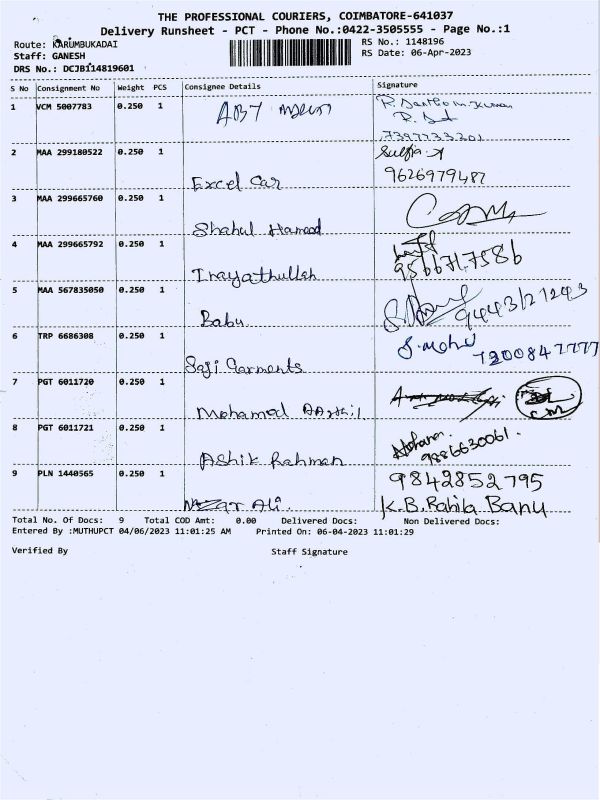 THE PROFESSIONAL COURIERS, COIMBATORE-641037
Delivery Runsheet - PCT - Phone No.:0422-3505555 - Page No.:1
Route: KARUMBUKADAI
RS No.: 1148196
Staff: GANESH
RS Date: 06-Apr-2023
DRS No.: DCJB114819601
S No Consignment No Weight PCS Consignee Details Signature
1 VCM 5007783 0.250 1 ABT
7397733301
2 MAA 299180522 0.250 1 Excel Car
Sulfia
9626979487
3 MAA 299665760 0.250 1 Shahul Hameed
4 MAA 299665792 0.250 1 Inayathullah
9566717586
5 MAA 567835050 0.250 1 Babu
9443121243
6 TRP 6686308 0.250 1 Saji Garments
S. Mohd
7200847777
7 PGT 6011720 0.250 1 Mohamed
8 PGT 6011721 0.250 1 Ashik Rahman
9886630061.
9 PLN 1440565 0.250 1 Nazar Ali.
9842852795
K.B. Rahila Banu
Total No. Of Docs: 9 Total COD Amt: 0.00 Delivered Docs: Non Delivered Docs:
Entered By :MUTHUPCT 04/06/2023 11:01:25 AM Printed On: 06-04-2023 11:01:29
Verified By Staff Signature